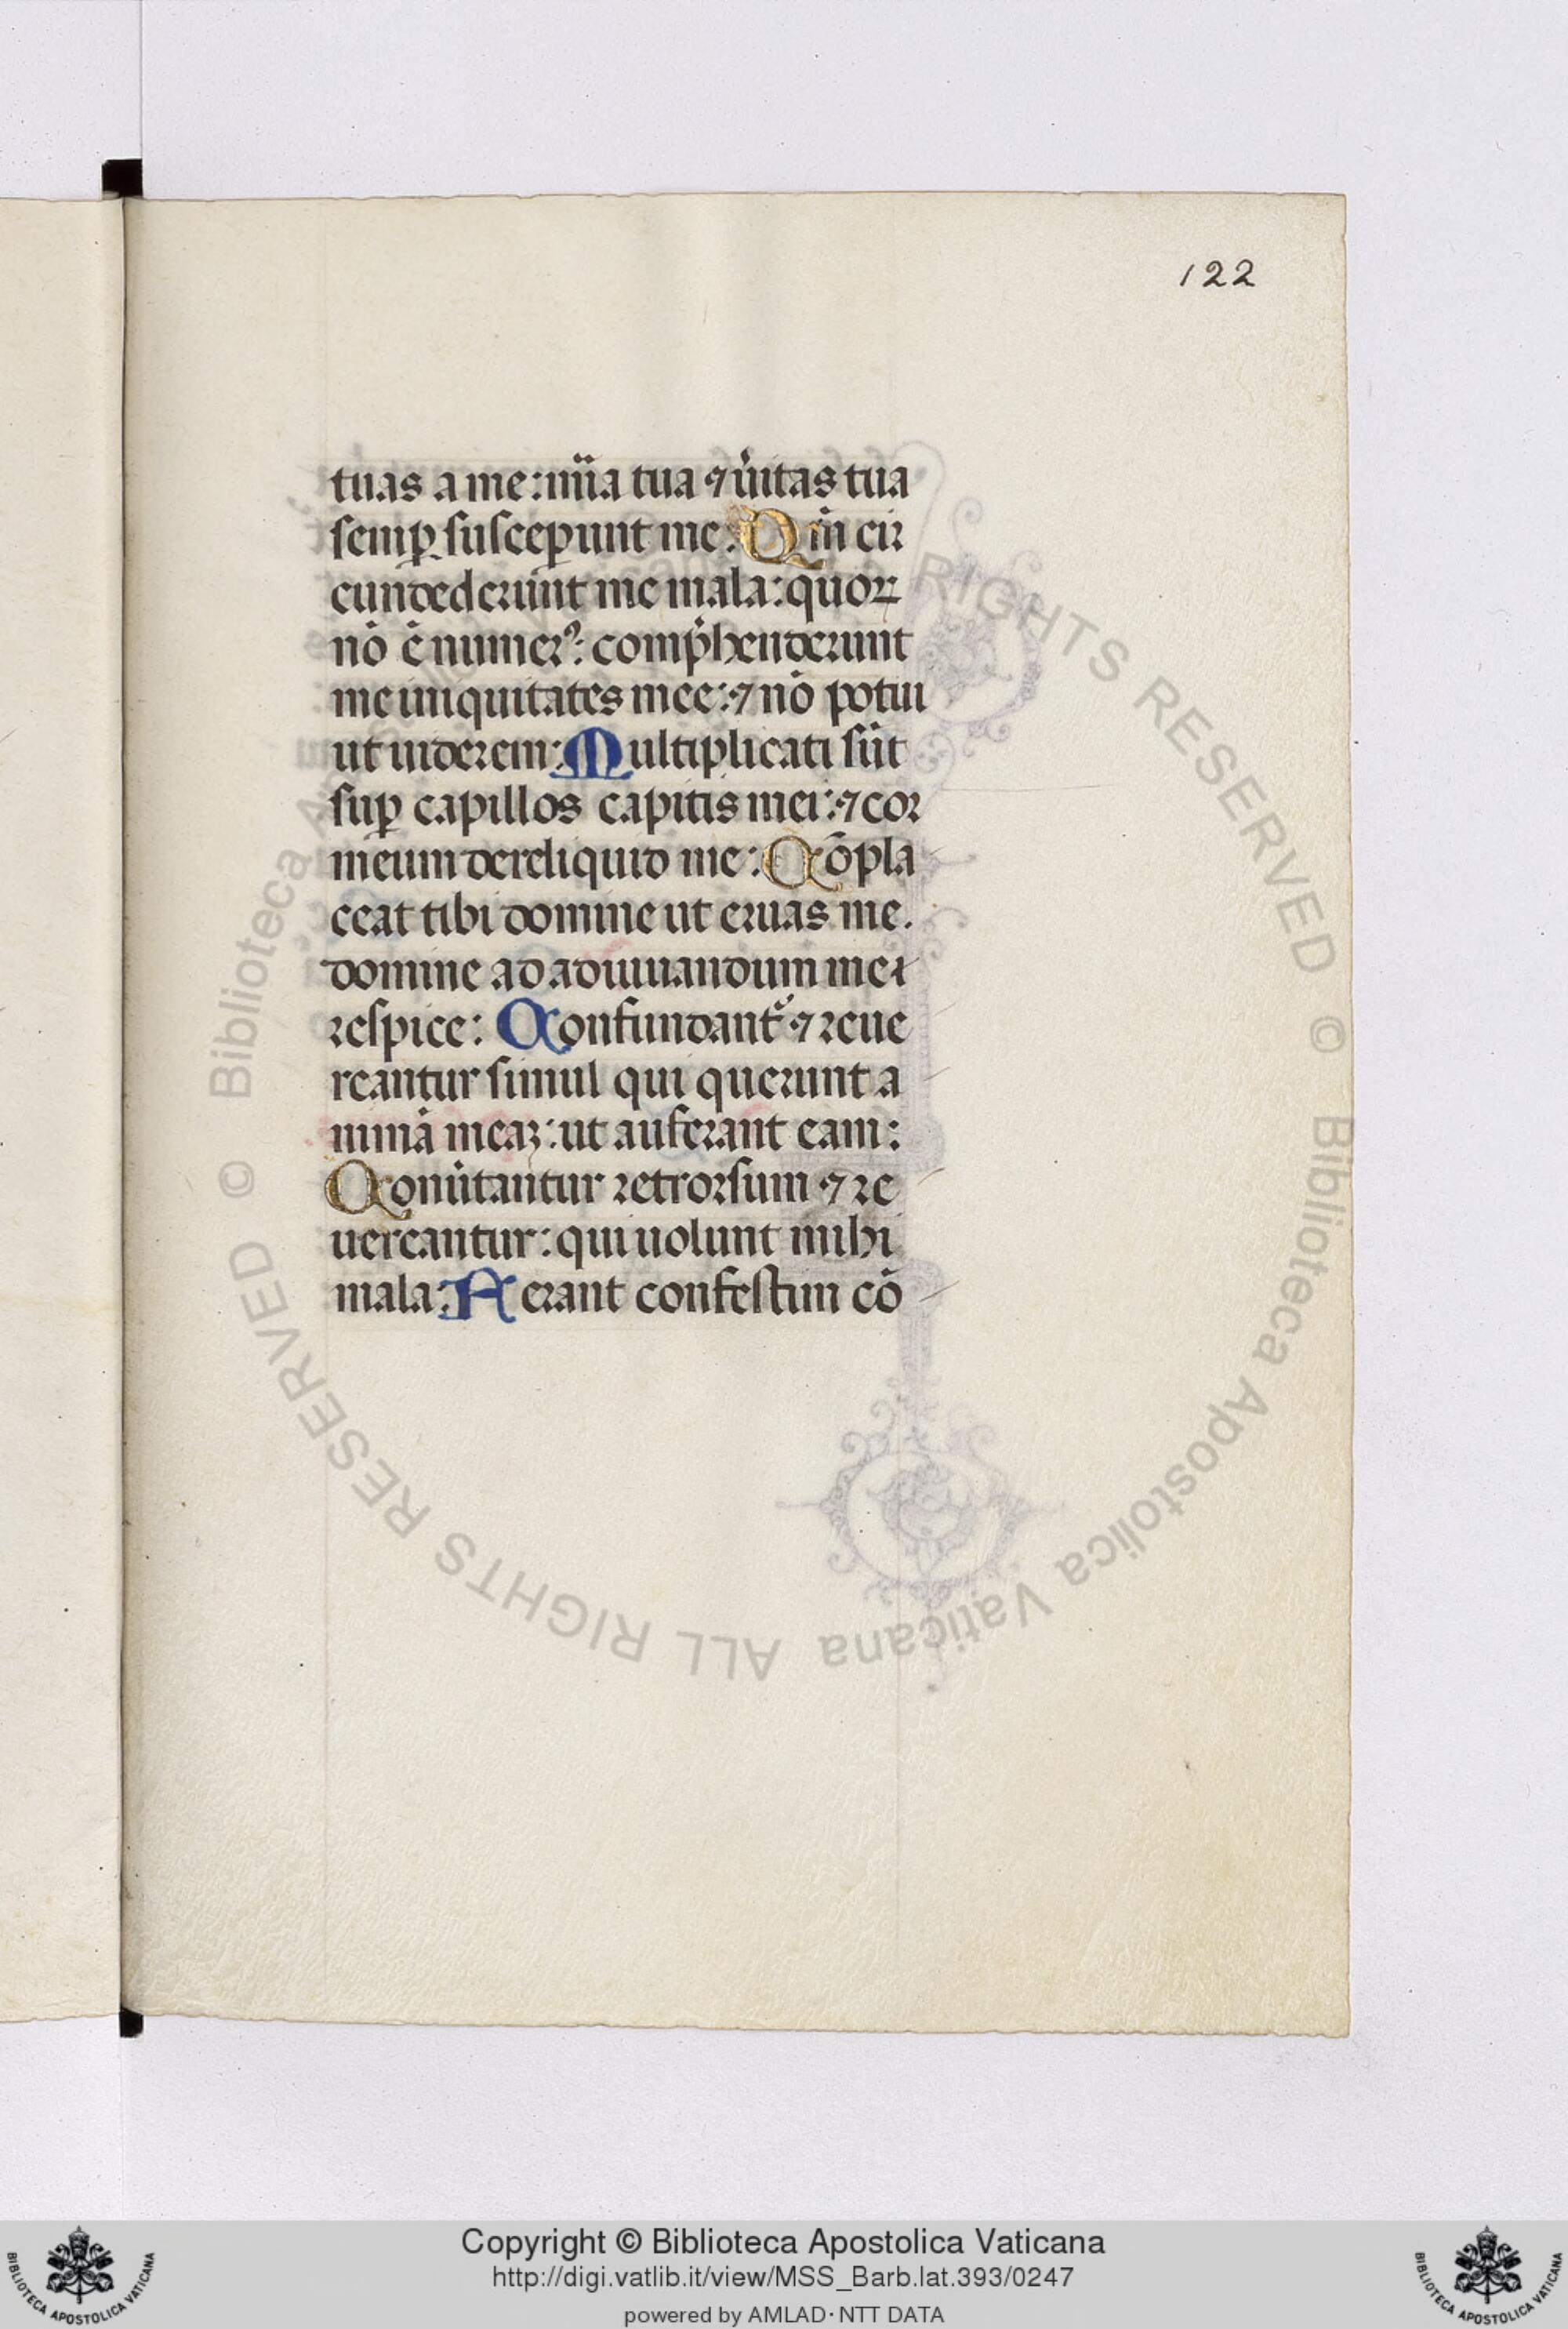 122
tuas a me: mi̅a tua ⁊ u̅itas tua
semꝑ susceꝑunt me: Qm̅ cir
cundederunt me mala: quoꝝ
nō ē numerꝰ: comp̅henderunt
me iniquitates mee: ⁊ nō potui
ut uiderem: Multiplicati su̅t
suꝑ capillos capitis mei: ⁊ cor
meum dereliquid me: Cōpla
ceat tibi domine ut eruas me.
domine ad adiuuandum mei
respice: Confundant᷑ ⁊ reue
reantur simul qui querunt a
nimā meaꝫ: ut auferant eam:
Conu̅tantur retrorsum ⁊ re
uereantur: qui uolunt mihi
mala: Ferant confestim cō
© Biblioteca Apostolica Vaticana ALL RIGHTS RESERVED © Biblioteca Apostolica Vaticana ALL RIGHTS RESERVED
Copyright © Biblioteca Apostolica Vaticana
http://digi.vatlib.it/view/MSS_Barb.lat.393/0247
powered by AMLAD·NTT DATA
BIBLIOTECA APOSTOLICA VATICANA
BIBLIOTECA APOSTOLICA VATICANA